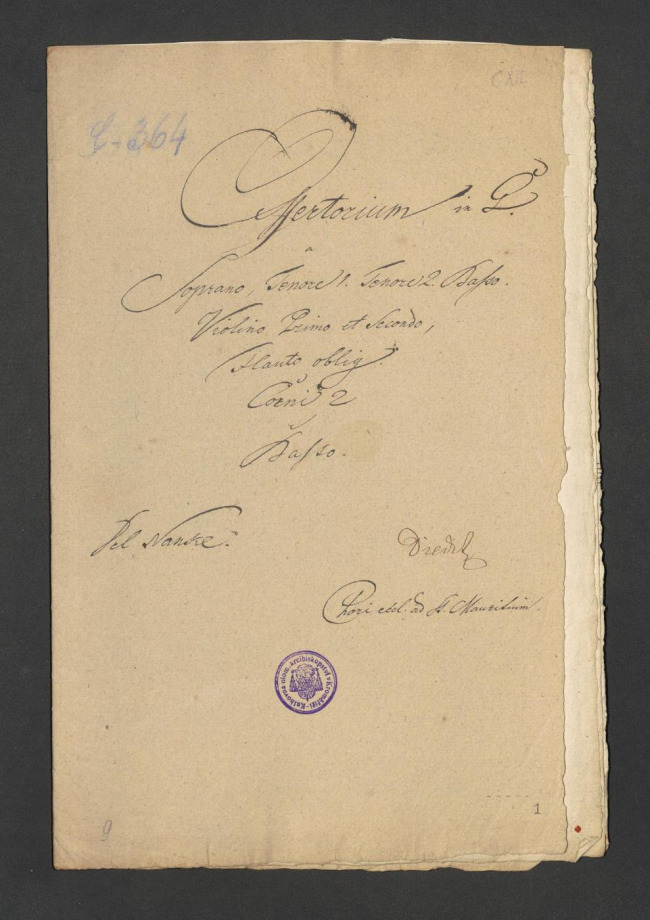 CXII
C-364
Offertorium in G.
a
Soprano, Tenore 1. Tenore 2. Basso.
Violino Primo et Secondo,
Flauto oblig.
Corni 2
Basso.
Del Nanke.
Chori eccl. ad St. Mauritium.
Knihovna olom. arcibiskupství v Kroměříži
1
9